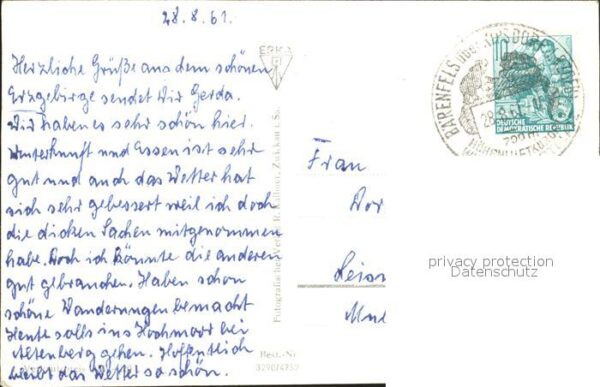 28.8.61.
Herzliche Grüße aus dem schönen
Erzgebirge sendet Dir Gerda.
Wir haben es sehr schön hier.
Unterkunft und Essen ist sehr
gut und auch das Wetter hat
sich sehr gebessert weil ich doch
die dicken Sachen mitgenommen
habe. Doch ich könnte die anderen
gut gebrauchen. Haben schon
schöne Wanderungen bemacht
Heute solls ins Hochmoor bei
Altenberg gehen. Hoffentlich
bleibt das Wetter so schön.
ERKA
Fotografischer Verlag R. Zwickau i. Sa.
Best.-Nr
Frau
10
DEUTSCHE
DEMOKRATISCHE REPUBLIK
BÄRENFELS ÜBER KIPSDORF
privacy protection
Datenschutz